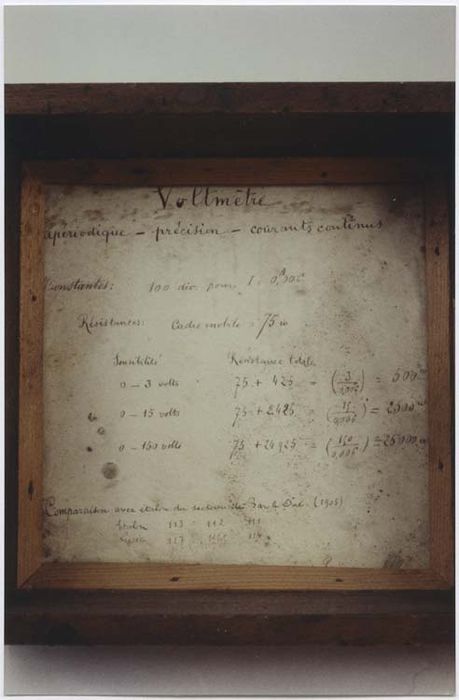 Voltmètre
apériodique – précision – courants continus
Constantes: 100 div. pour I = 0,006
Résistances: Cadre mobile = 75 ω
Sensibilité Résistance totale
0 – 3 volts 75 + 425 = (3/0,006) = 500 ω
0 – 15 volts 75 + 2425 = (15/0,006) = 2500 ω
0 – 150 volts 75 + 24925 = (150/0,006) = 25000 ω
Comparaison avec étalon du secteur de Bar-le-Duc (1905)
113 112 111
117